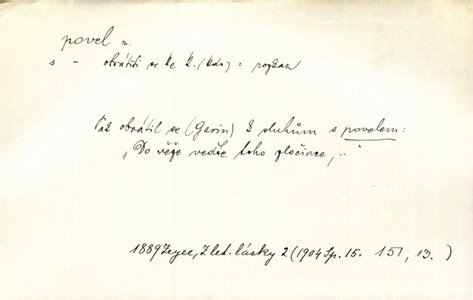 povel m.
s - obrátiti se ke k. (kdo) = rozkaz
Pak obrátil se (Garin) k sluhům s povelem:
„Do věže veďte toho zločince,..“
1889 Zeyer, Z let. lásky 2 (1904 Sp. 15. 151, 13.)